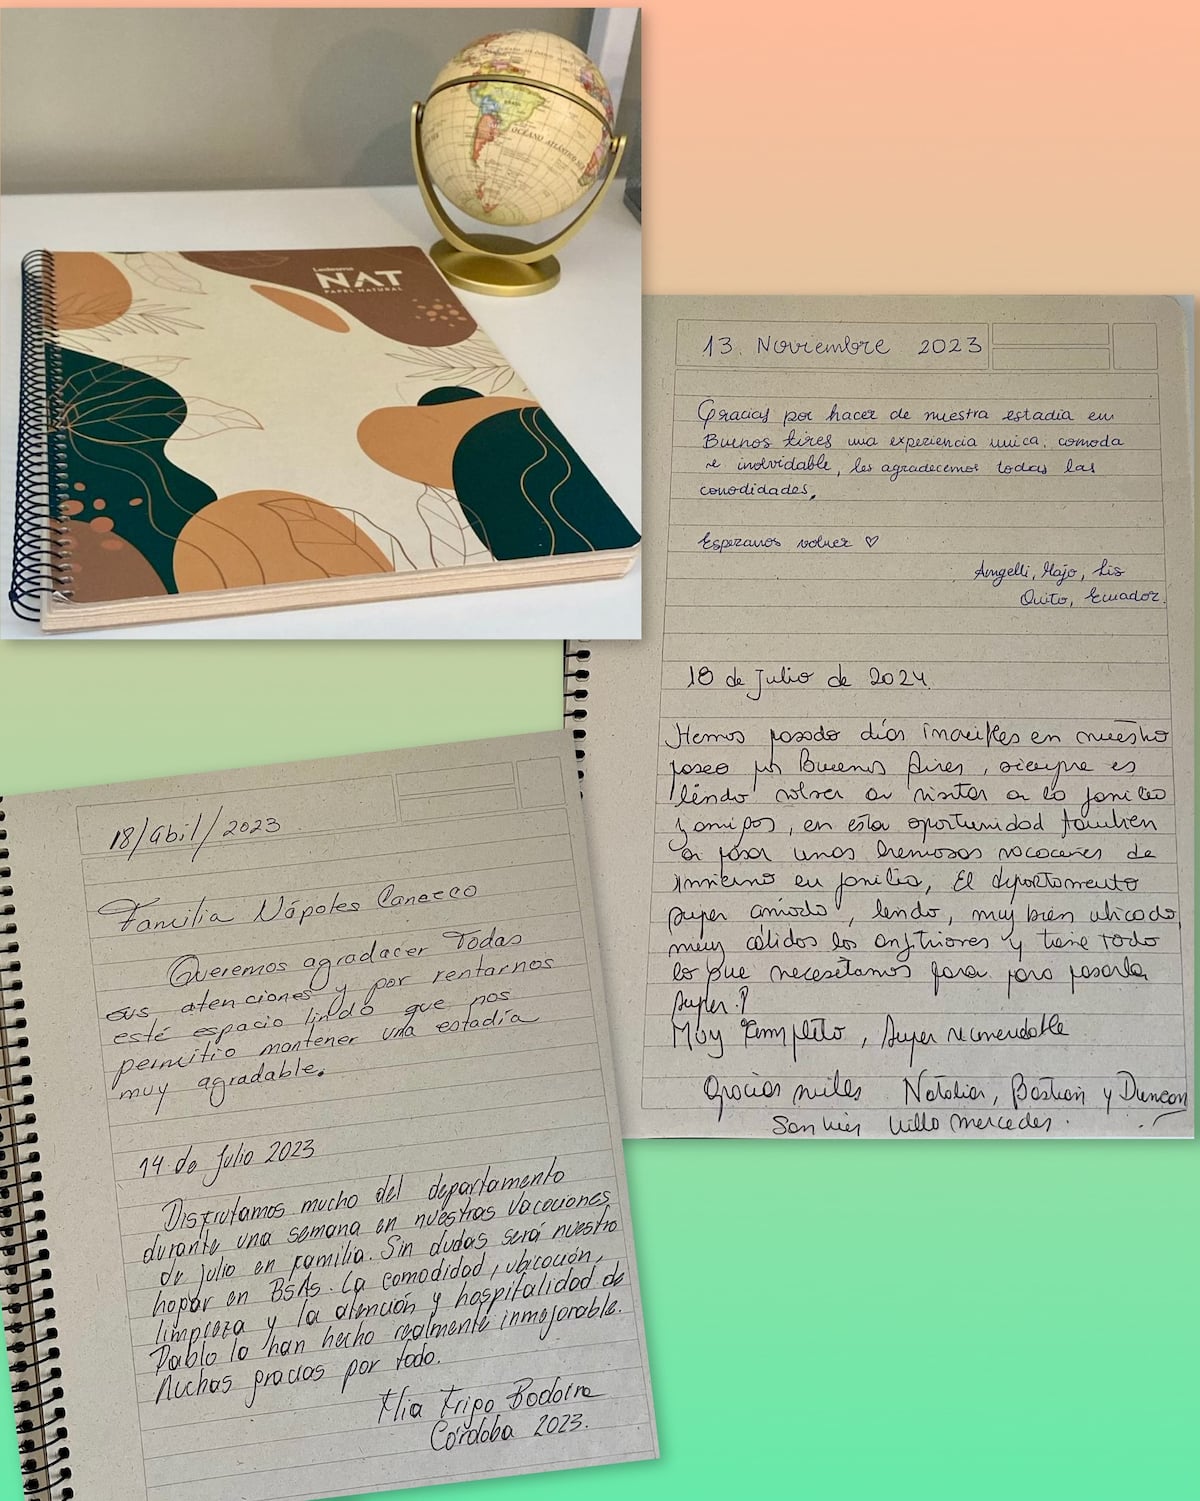 Ledesma
NAT
PAPEL NATURAL
BRASIL
OCÉANO ATLÁNTICO
13. Noviembre 2023
Gracias por hacer de nuestra estadia en
Buenos Aires una experiencia unica, comoda
e inolvidable, les agradecemos todas las
comodidades.
Esperamos volver ♡
Angelli, Majo, Lis
Quito, Ecuador.
18 de Julio de 2024
Hemos pasado días increíbles en nuestro
paseo por Buenos Aires, siempre es
lindo volver a visitar a la familia
y amigos, en esta oportunidad también
a pasar unas hermosas vacaciones de
invierno en familia, El departamento
super cómodo, lindo, muy bien ubicado
muy cálidos los anfitriones y tiene todo
lo que necesitamos para para pasarla
super.!
Muy Completo, Super recomendable
Gracias miles Natalia, Bastian y Duncan
San Luis Villa Mercedes.
18/abil/2023
Familia Nápoles
Queremos agradacer Todas
sus atenciones y por rentarnos
esté espacio lindo que nos
permitio mantener una estadía
muy agradable.
14 de Julio 2023
Disfrutamos mucho del departamento
durante una semana en nuestras vacaciones
de julio en familia. Sin dudas será nuestro
hogar en BsAs. La comodidad, ubicación,
limpieza y la atención y hospitalidad de
Pablo lo han hecho realmente inmejorable.
Muchas gracias por todo.
Flia
Córdoba 2023.